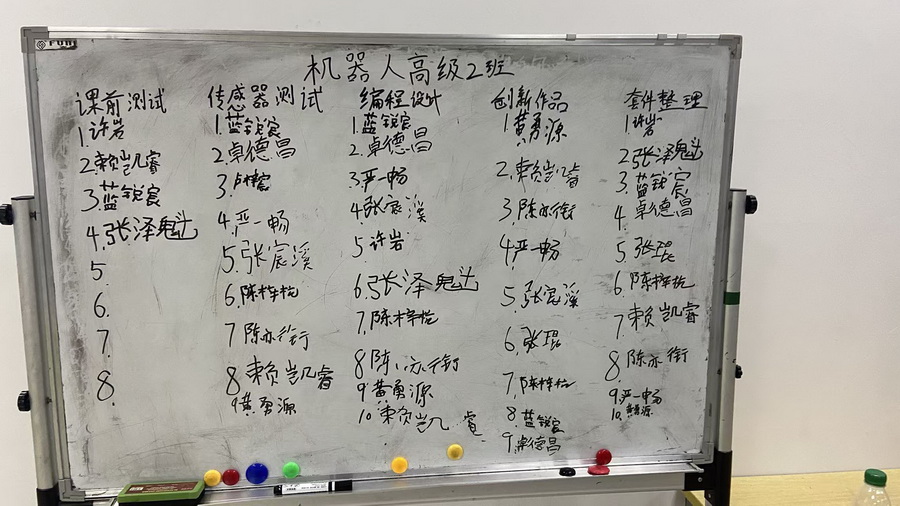 机器人高级2班
课前测试
1.许岩
2.赖凯睿
3.蓝锐宸
4.张泽魁
5
6.
7.
8.
传感器测试
1.蓝锐宸
2.卓德昌
3.
4.严一畅
5.张宸溪
6.陈梓杭
7陈亦衍
8赖凯睿
9黄勇源
编程设计
1.蓝锐宸
2.卓德昌
3.严一畅
4.张宸溪
5.许岩
6.张泽魁
7.陈梓杭
8陈亦衍
9黄勇源
10.赖凯睿
创新作品
1黄勇源
2.赖凯睿
3.陈亦衍
4严一畅
5.张宸溪
6.张琨
7.陈梓杭
8.蓝锐宸
9.卓德昌
套件整理
1.许岩
2张泽魁
3.蓝锐宸
4.卓德昌
5.张琨
6陈梓杭
7赖凯睿
8陈亦衍
9严一畅
10.黄勇源